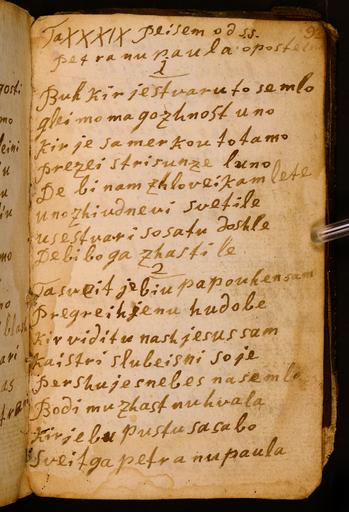 Ta XXXIX peisem od ss.
petra nu paula opostelnu
1
Buh kir je stvaru to semlo
glei mo ma gozhnost uno
kir je sa merkou to tamo
prezei stri sunze luno
De bi nam zhloveikam lete
uno zhiudnevi svetile
use stvari so satu doshle
De bi boga zhastile
2
Ta sveit je biu papouhen sam
Pregreihjenu hudobe
kir viditu nash jesus sam
kai stri slubeisni so je
pershu je s nebes na semlo
Bodi mu zhast nu hvala
kir je bu pustu sa sabo
sveitga petra nu paula